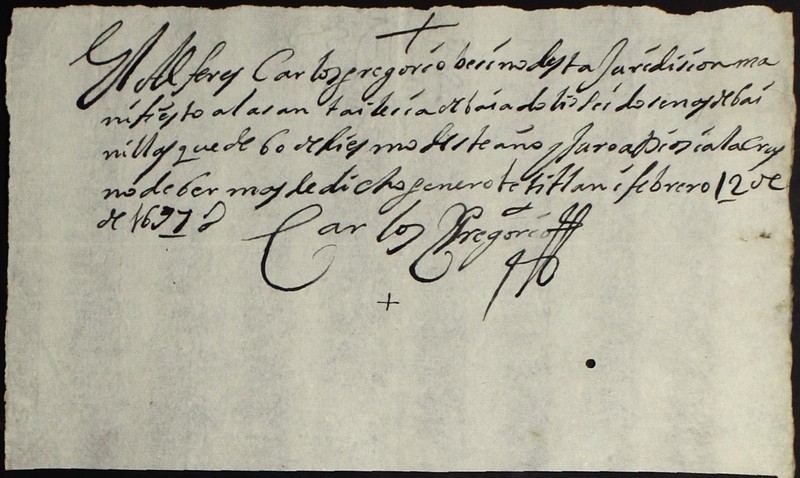 El Alferes Carlos gregorio besino desta Juridision ma
nifiesto a la santa iglesia de baiadolid seis dosenas de bai
nillas que debo de diesmo deste año y Juro a Dios i a la Crus
no deber mas de dicho genero tetitlan i febrero 12 de
de 1697 a
Carlos Gregorio